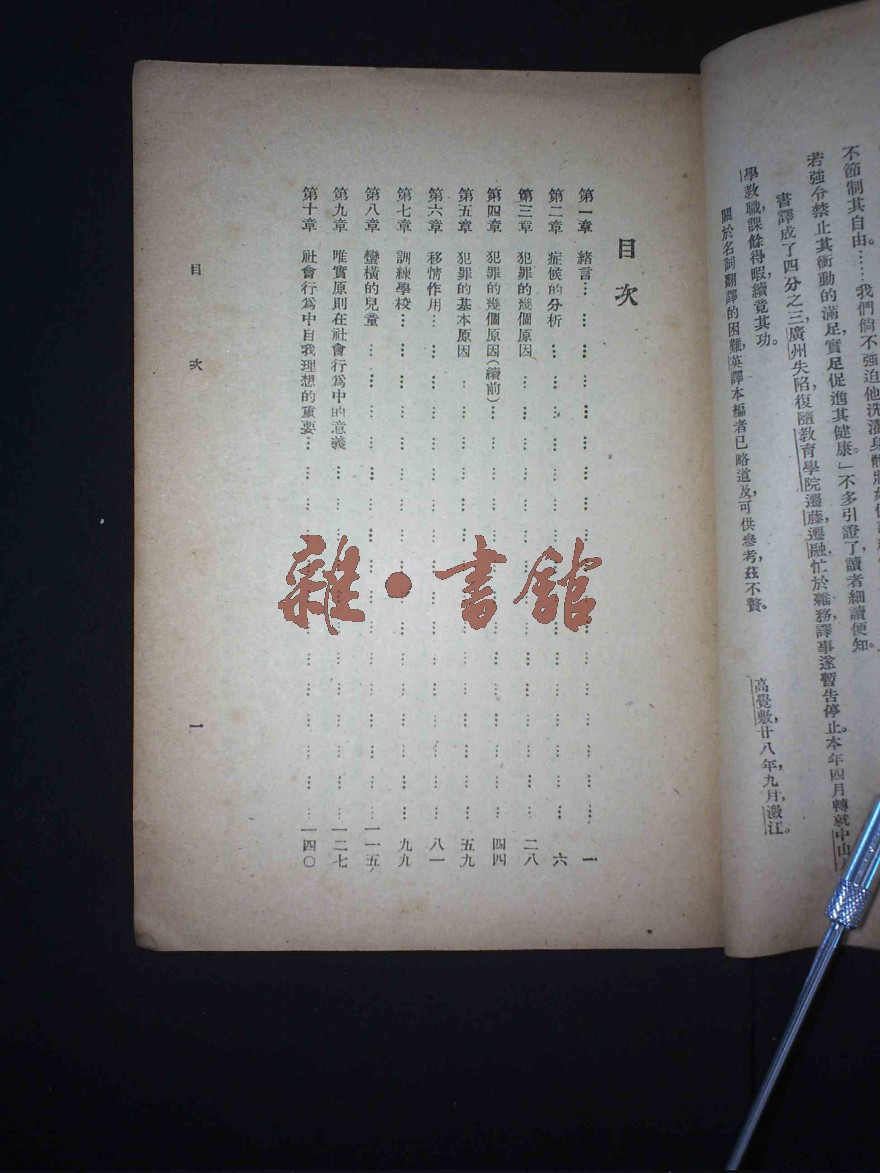 不節制其自由。……我們倘不強迫他洗
若強分禁止其衝動的滿足,實足促進其健康。」不多引證了,讀者細讀便知。
書譯成了四分之三,廣州失陷,復隨教育學院遷藤,遷融,忙於雜務,譯事遂暫告停止。本年四月轉就中山
學教職,課餘得暇,續竟其功。
關於名詞翻譯的困難,英譯本編者已略道及,可供參考,茲不贅。
高覺敷,廿八年九月,澂江。
目次
第一章 緒言 一
第二章 症候的分析 六
第三章 犯罪的幾個原因 二八
第四章 犯罪的幾個原因(續前) 四四
第五章 犯罪的基本原因 五九
第六章 移情作用 八一
第七章 訓練學校 九九
第八章 蠻橫的兒童 一一五
第九章 唯實原則在社會行為中的意義 一二七
第十章 社會行為中自我理想的重要 一四〇
目次 一
雜·書館